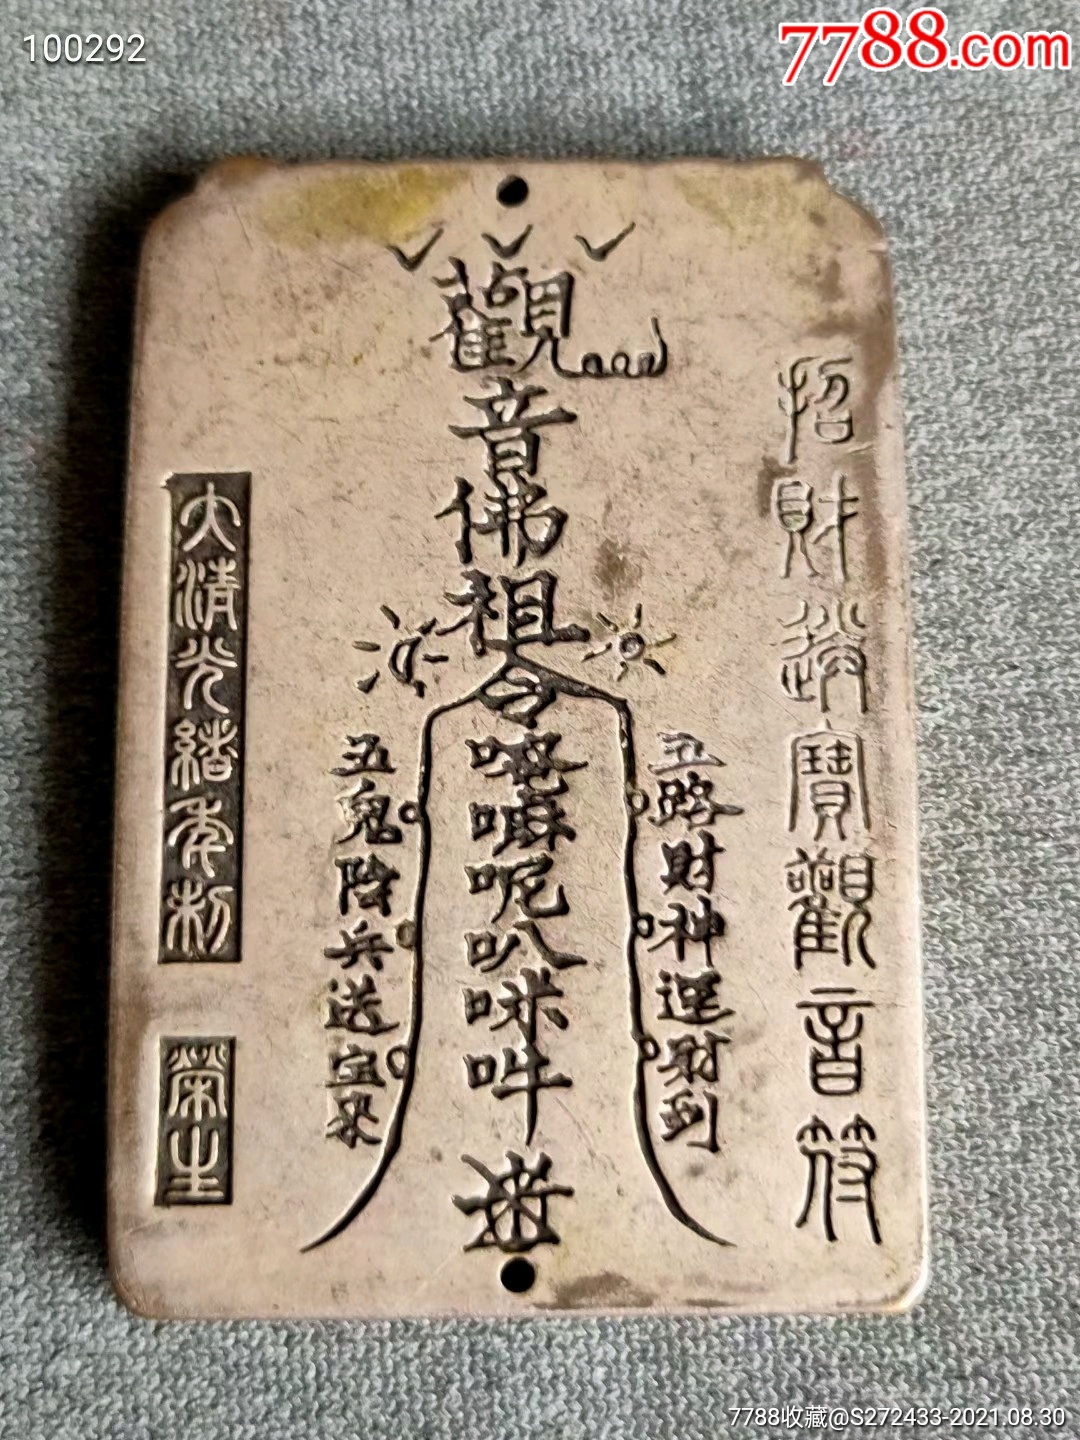 100292
7788.com
招財進寶觀音符
觀
音佛祖令
唵嘛呢叭咪吽
五路財神運財到
五鬼陰兵送宝來
大清光緒年制
榮生
7788收藏@S272433-2021.08.30